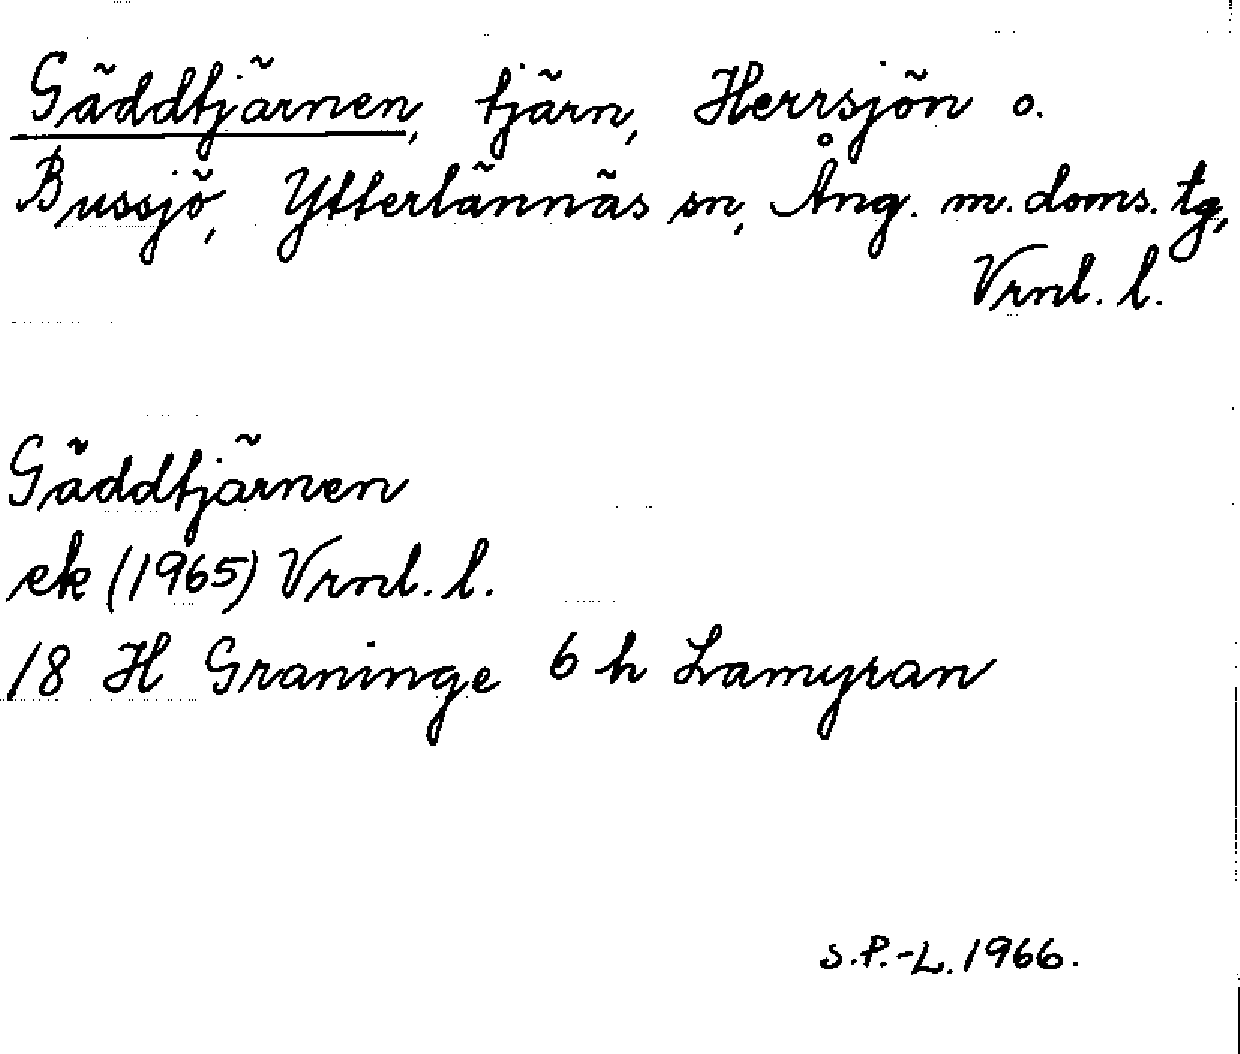 Gäddtjärnen, tjärn, Herrsjön o.
Bussjö, Ytterlännäs sn, Ång. m. doms. tg,
Vrnl. l.
Gäddtjärnen
ek (1965) Vrnl. l.
18 H Graninge 6 h Lamyran
S.P.-L. 1966.